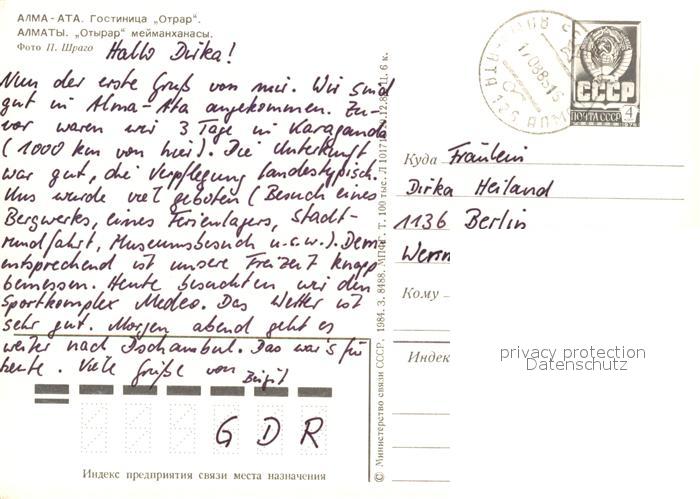 АЛМА-АТА. Гостиница „Отрар“.
АЛМАТЫ. „Отырар“ мейманханасы.
Фото П. Шраго
Hallo Dirka!
Nun der erste Gruß von mir. Wir sind
gut in Alma-Ata angekommen. Zu-
vor waren wir 3 Tage in Karaganda
(1000 km von hier). Die Unterkunft
war gut, die Verpflegung landestypisch.
Uns wurde viel geboten (Besuch eines
Bergwerks, eines Ferienlagers, Stadt-
rundfahrt, Museumsbesuch u.s.w.). Dem
entsprechend ist unsere Freizeit knapp
bemessen. Heute besuchten wir den
Sportkomplex Medeo. Das Wetter ist
sehr gut. Morgen abend geht es
weiter nach Dschambul. Das war's für
heute. Viele Grüße von Birgit
G D R
Индекс предприятия связи места назначения
© Министерство связи СССР. 1984. З. 8488. МПФГ. Т. 100 тыс. Ц. 6 к.
СССР
ПОЧТА СССР 4
Куда Fräulein
Dirka Heiland
1136 Berlin
Кому
Индек
privacy protection
Datenschutz